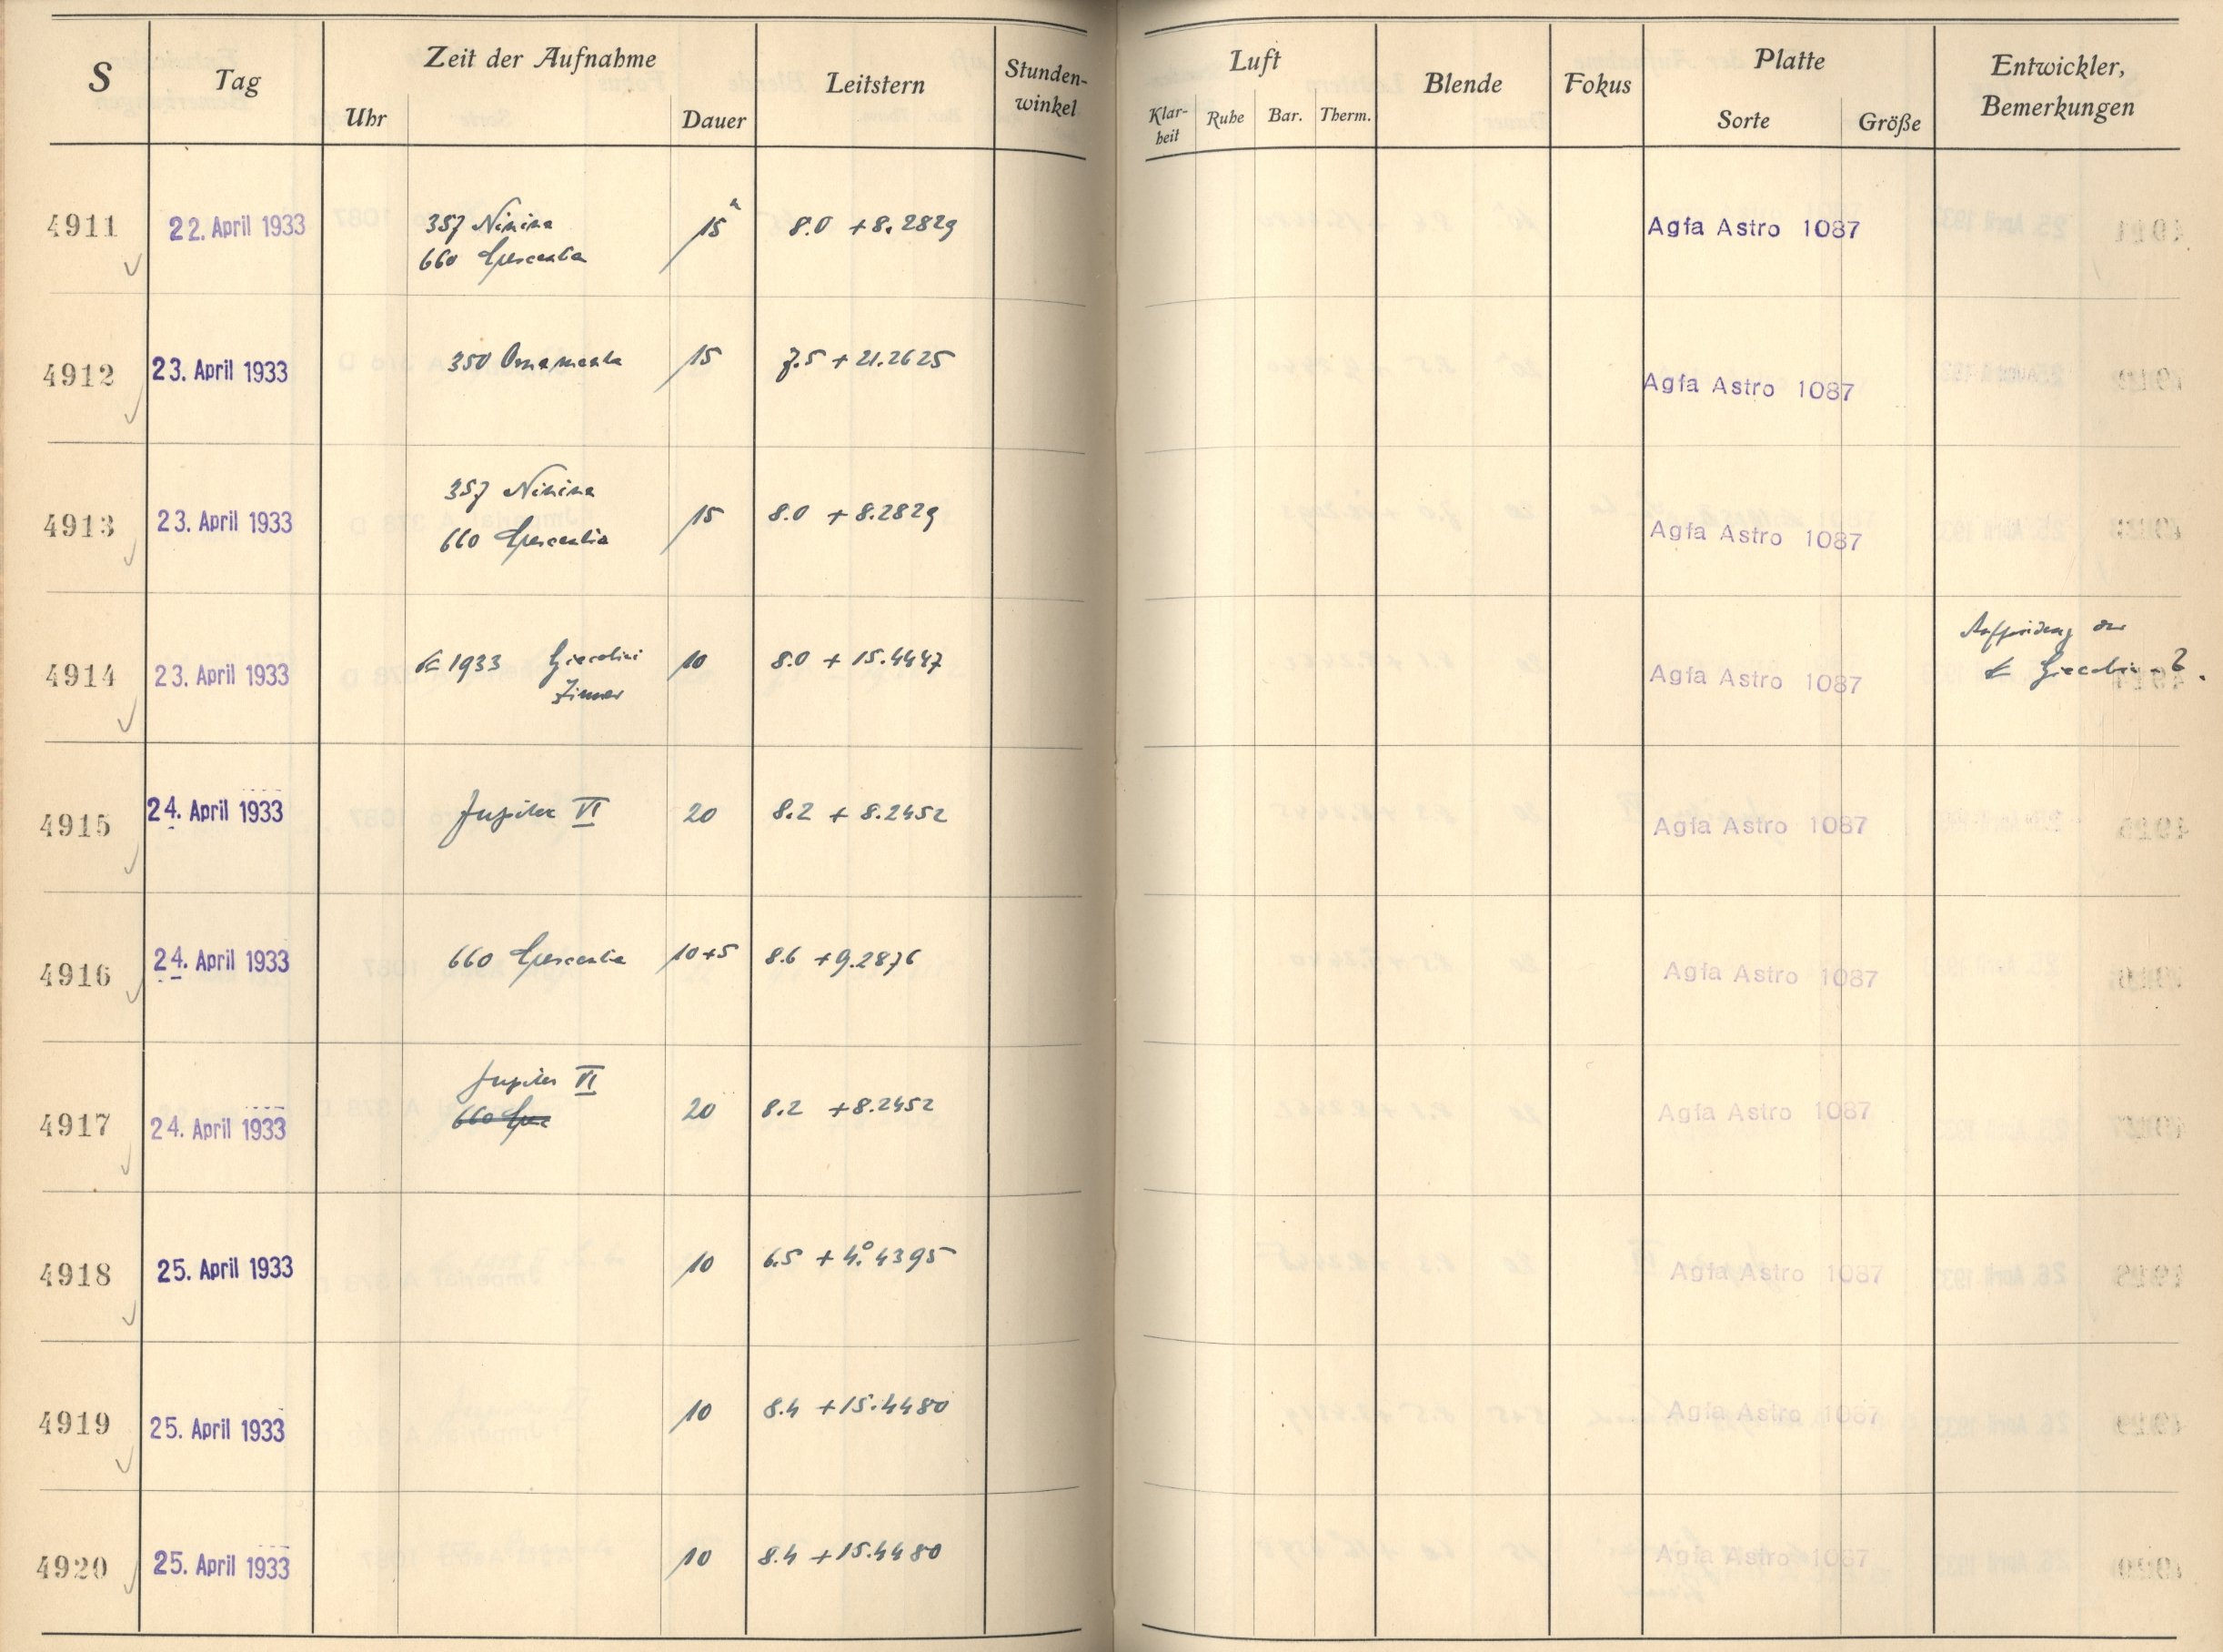 S Tag Zeit der Aufnahme Leitstern Stunden-winkel Luft Blende Fokus Platte Entwickler, Bemerkungen
Uhr Dauer Klar-heit Ruhe Bar. Therm. Sorte Größe
4911 22. April 1933 357 Ninina 15 8.0 +8.2829 Agfa Astro 1087
660 Crescentia
4912 23. April 1933 350 Ornamenta 15 7.5 + 21.2625 Agfa Astro 1087
4913 23. April 1933 357 Ninina 15 8.0 +8.2829 Agfa Astro 1087
660 Crescentia
4914 23. April 1933 1933 Giacobini 10 8.0 + 15.4447 Agfa Astro 1087 Auffindung des
Zinner Giacobini - ?
4915 24. April 1933 Jupiter VI 20 8.2 + 8.2452 Agfa Astro 1087
4916 24. April 1933 660 Crescentia 10+5 8.6 +9.2876 Agfa Astro 1087
4917 24. April 1933 Jupiter VI 20 8.2 +8.2452 Agfa Astro 1087
660 Cre
4918 25. April 1933 10 6.5 + 4.°4395 Agfa Astro 1087
4919 25. April 1933 10 8.4 +15.4480 Agfa Astro 1087
4920 25. April 1933 10 8.4 +15.4480 Agfa Astro 1087